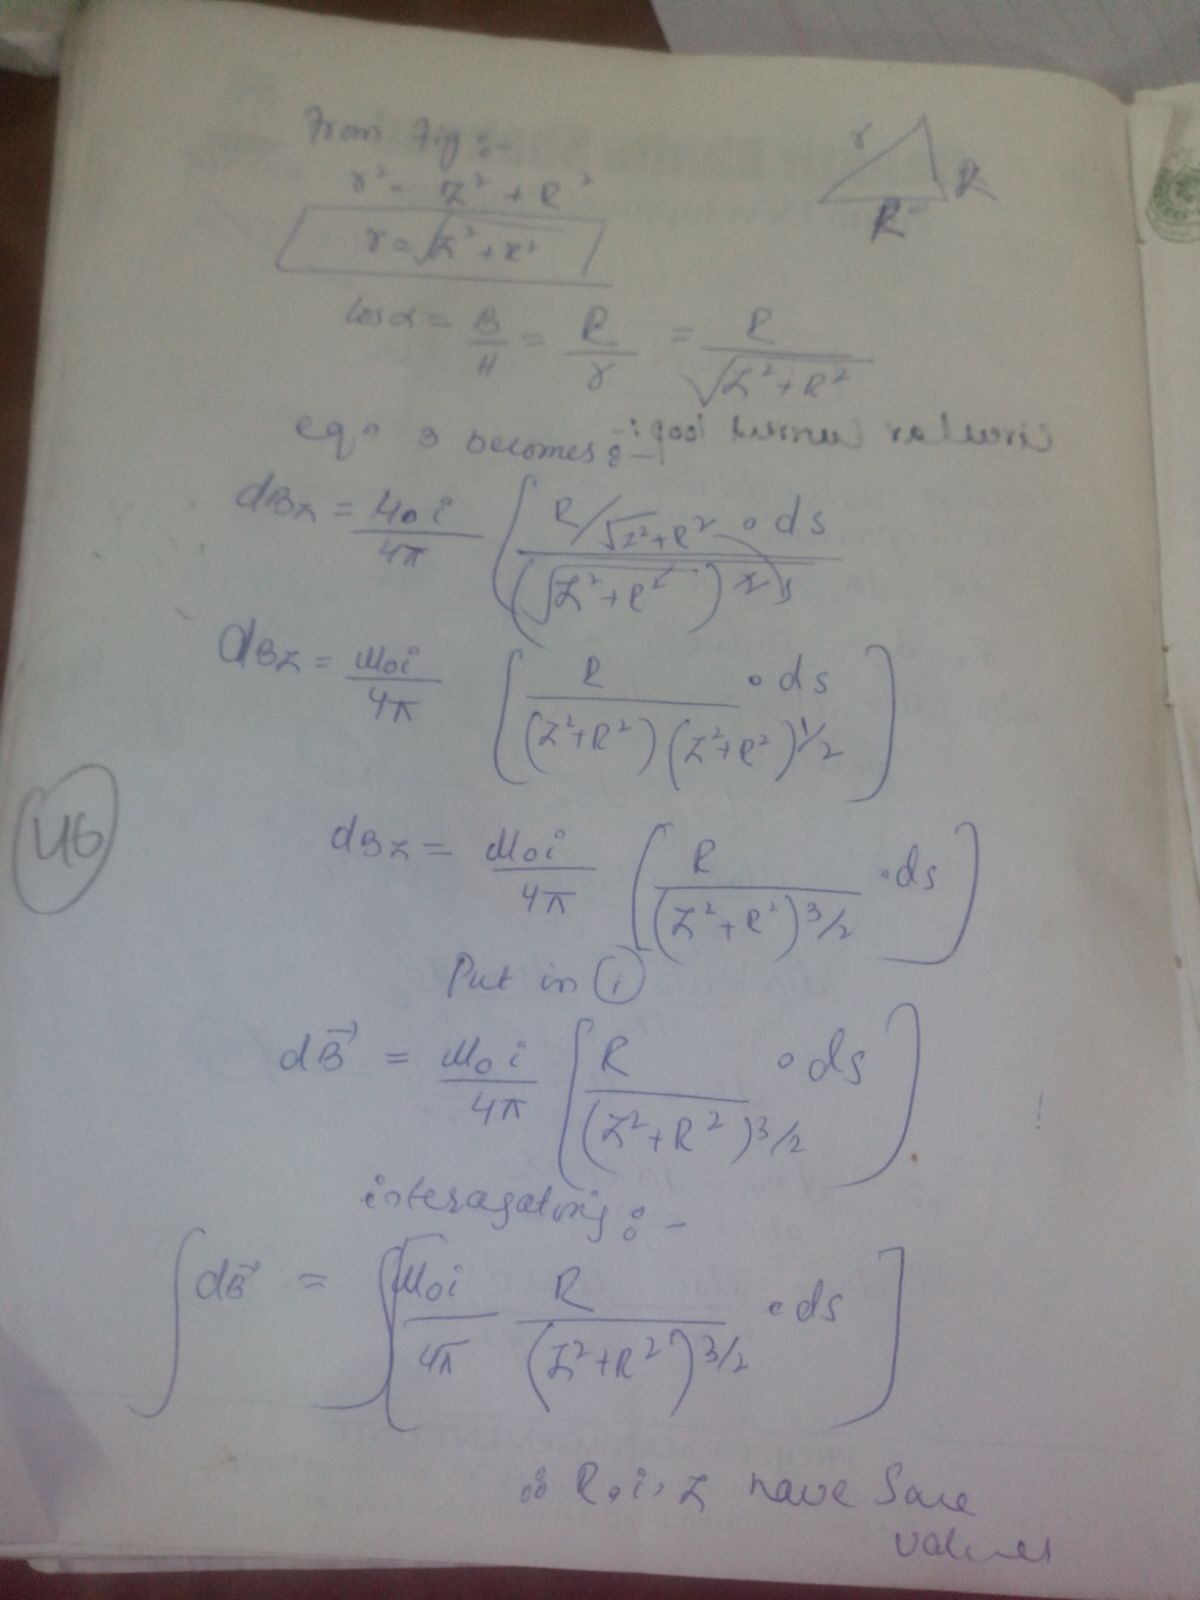 From Fig :-
r² = Z² + R²
r = √Z² + R²
r
R
R
Cosα = B/H = R/r = R/√Z²+R²
eqn 3 becomes :-
Circular Current loop :-
dBz = μ₀i/4π [R/√Z²+R² · ds / (√Z²+R²)²
dBz = μ₀i/4π [R/(Z²+R²)(Z²+R²)^1/2 · ds]
46
dBz = μ₀i/4π [R/(Z²+R²)^3/2 · ds]
Put in ①
dB⃗ = μ₀i/4π [R/(Z²+R²)^3/2 · ds]
interagating :-
∫dB⃗ = ∫[μ₀i/4π R/(Z²+R²)^3/2 · ds]
∴ R, i, Z have Same
values